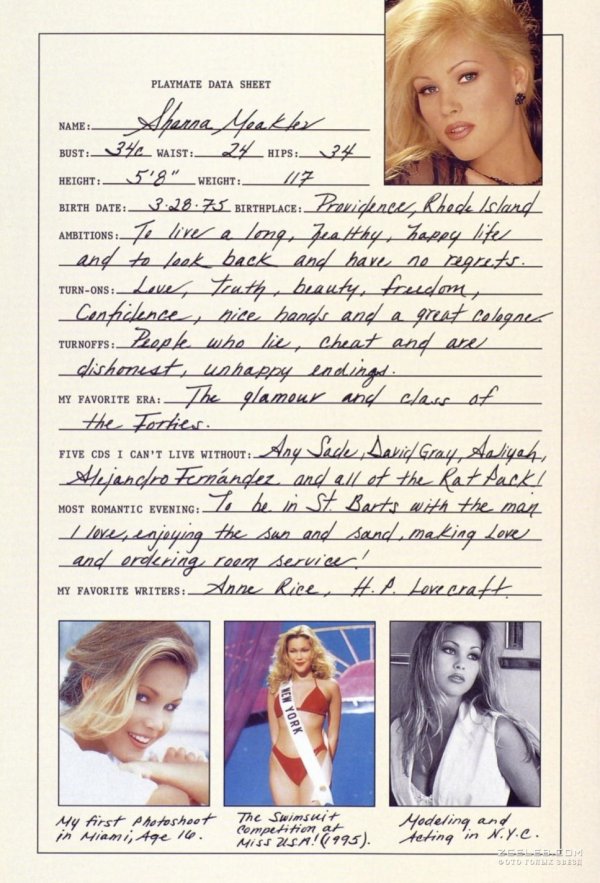 PLAYMATE DATA SHEET
NAME: Shanna Moakler
BUST: 34c WAIST: 24 HIPS: 34
HEIGHT: 5'8" WEIGHT: 117
BIRTH DATE: 3-28-75 BIRTHPLACE: Providence, Rhode Island
AMBITIONS: To live a long, healthy, happy life
and to look back and have no regrets.
TURN-ONS: Love, truth, beauty, freedom,
Confidence, nice hands and a great cologne.
TURNOFFS: People who lie, cheat and are
dishonest, unhappy endings.
MY FAVORITE ERA: The glamour and class of
the Forties.
FIVE CDS I CAN'T LIVE WITHOUT: Any Sade, David Gray, Aaliyah,
Alejandro Fernández and all of the Rat Pack!
MOST ROMANTIC EVENING: To be in St. Barts with the man
I love, enjoying the sun and sand, making love
and ordering room service!
MY FAVORITE WRITERS: Anne Rice, H.P. Lovecraft.
NEW YORK
My first Photoshoot
in Miami, Age 16.
The Swimsuit
Competition at
Miss USA! (1995).
Modeling and
Acting in N.Y.C.
ZCELEB.COM
ФОТО ГОЛЫХ ЗВЕЗД